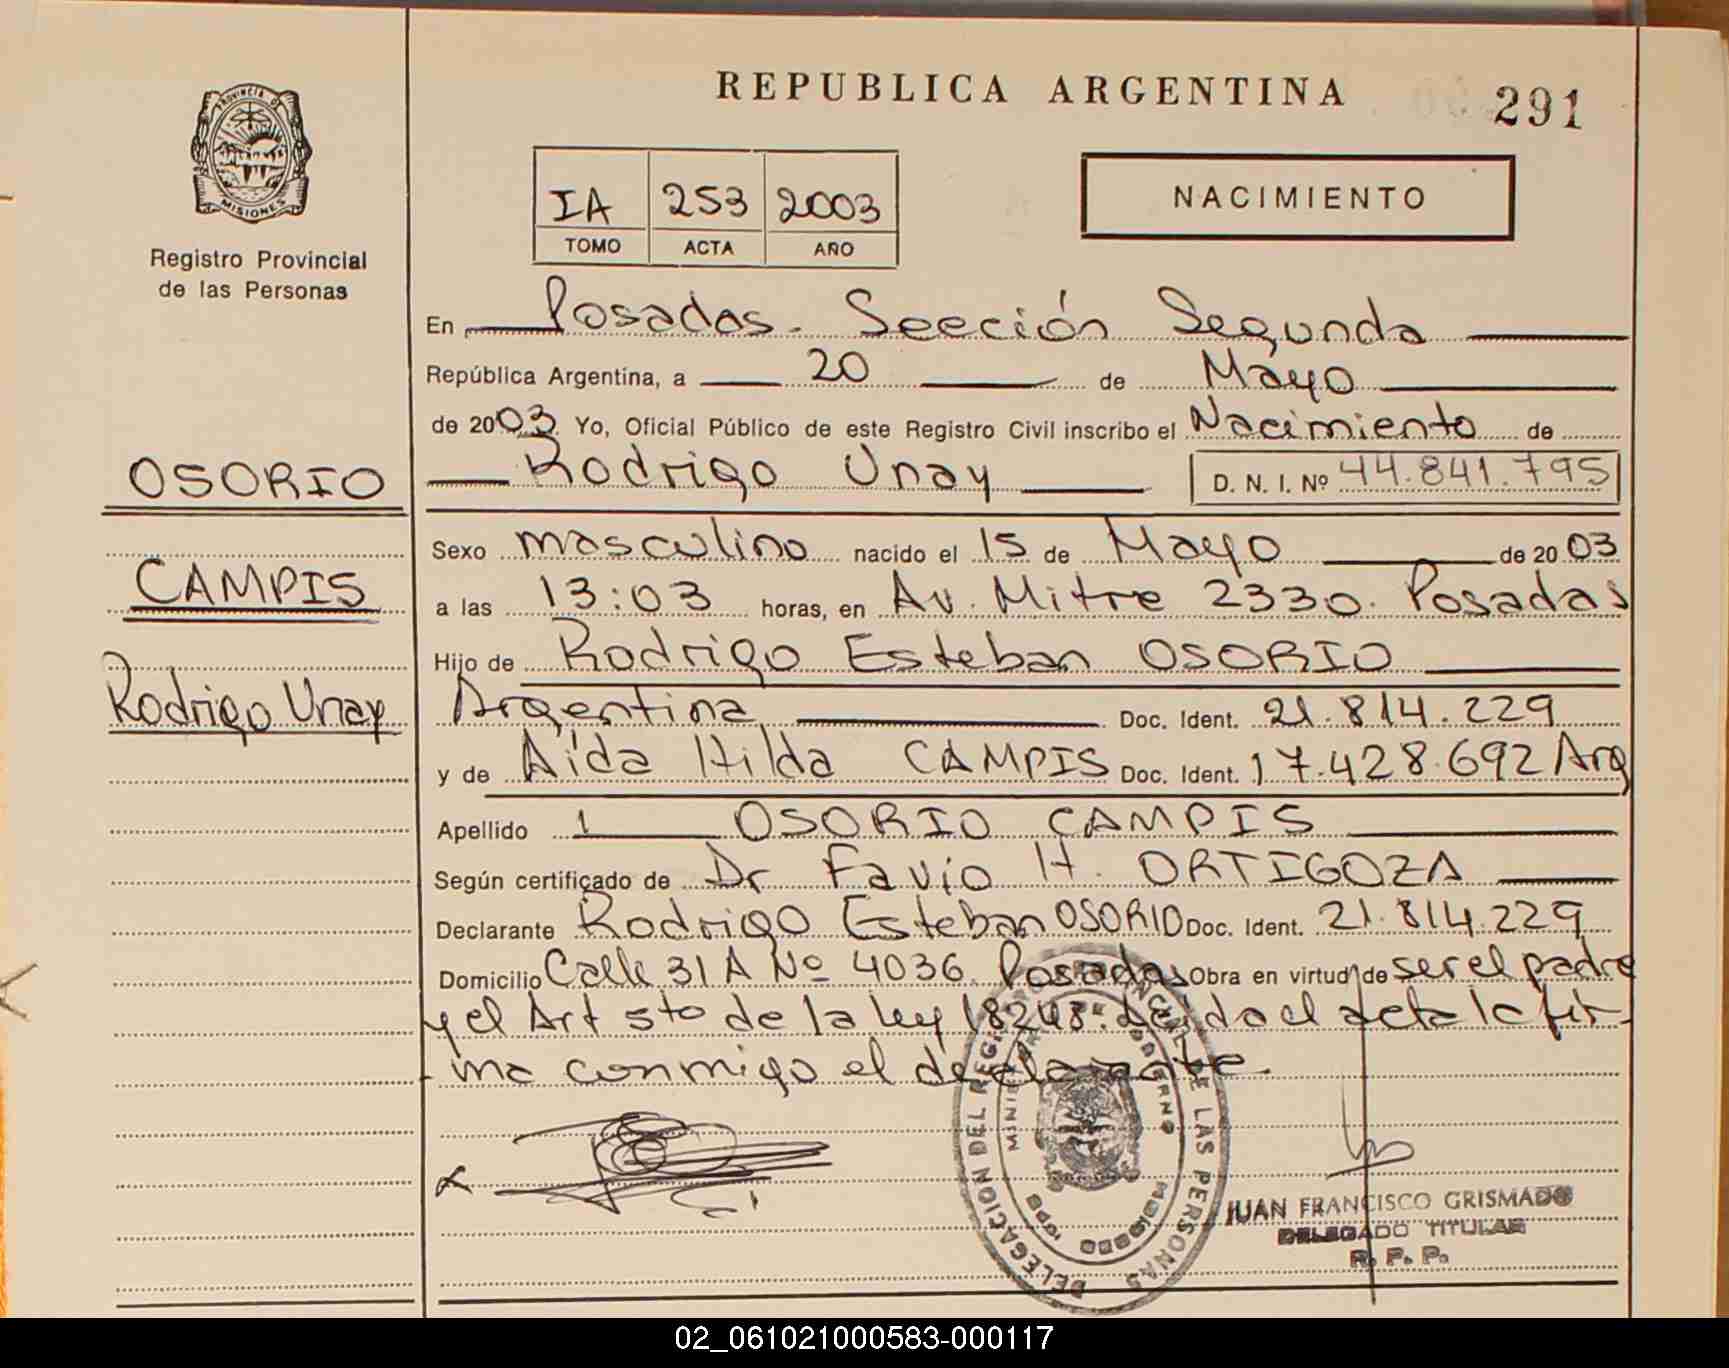 REPUBLICA ARGENTINA
291
PROVINCIA DE
MISIONES
Registro Provincial
de las Personas
IA 253 2003
TOMO ACTA AÑO
NACIMIENTO
En Posadas. Sección Segunda
República Argentina, a 20 de Mayo
de 2003 Yo, Oficial Público de este Registro Civil inscribo el Nacimiento de
Rodrigo Unay D. N. I. Nº 44.841.795
OSORIO
CAMPIS
Rodrigo Unay
Sexo masculino nacido el 15 de Mayo de 2003
a las 13:03 horas, en Av. Mitre 2330. Posadas
Hijo de Rodrigo Esteban OSORIO
Argentina Doc. Ident. 21.814.229
y de Aída Hilda CAMPIS Doc. Ident. 17.428.692 Arg
Apellido 1 OSORIO CAMPIS
Según certificado de Dr Favio H. ORTIGOZA
Declarante Rodrigo Esteban OSORIO Doc. Ident. 21.814.229
Domicilio Calle 31 A Nº 4036. Posadas Obra en virtud de ser el padre
y el Art 5to de la ley 18248. Leída el acta la fir-
-ma conmigo el declarante.
DELEGACION DEL REGISTRO PROVINCIAL DE LAS PERSONAS
MINISTERIO DE GOBIERNO
JUAN FRANCISCO GRISMADO
DELEGADO TITULAR
R. P. P.
02_061021000583-000117